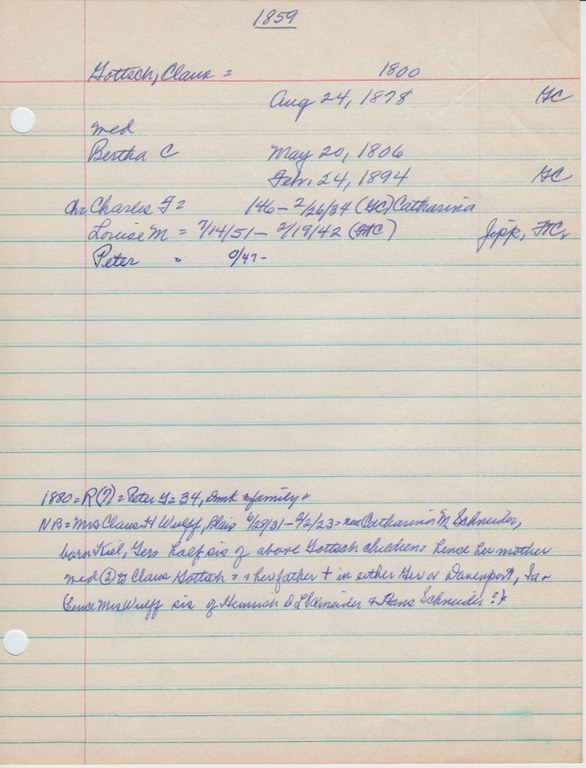 1859
Gottsch, Claus = 1800
Aug 24, 1878 GC
med
Bertha C May 20, 1806
Feb. 24, 1894 GC
Ch= Charles G= 146 - 2/26/34 (GC) Catharina
Louise M = 7/14/51 - 2/19/42 (GC) Jipp, FC,
Peter " 0/47-
1880 = R(?) = Peter G= 34, & family
NB = Mrs Claus H Wulff, Blair 6/28/31 - 9/2/23 = nee Catharina M Schneider,
born Kiel, Ger= half sis of above Gottsch children= hence her mother
med (2) to Claus Gottsch = + her father + in either Ger or Davenport, Ia=
hence Mrs Wulff sis of Heinrich D L Schneider & Hans Schneider ?